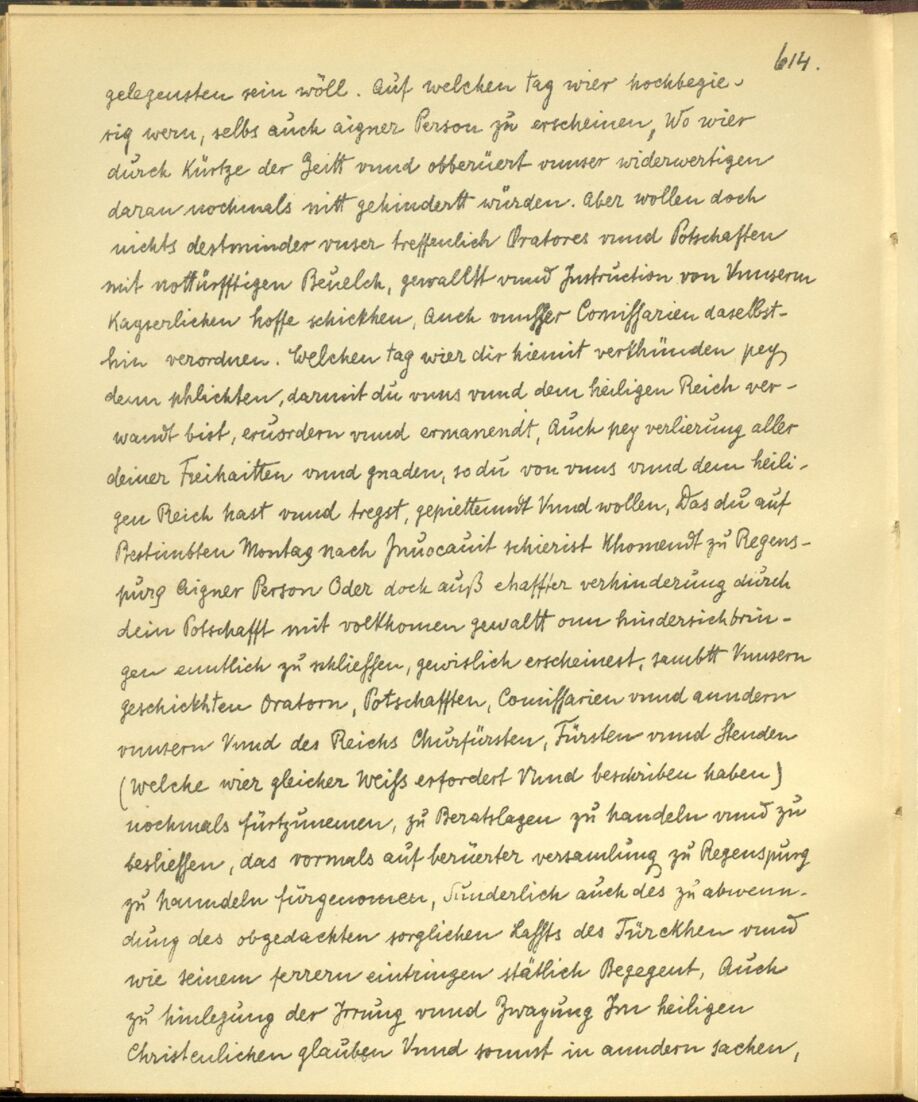 614.
gelegensten sein wöll. Auf welchen tag wier hochbegie-
rig wern, selbs auch aigner Person zu erscheinen, Wo wier
durch Kürtze der Zeitt vnnd obberüert vnnser widerwertigen
daran nochmals nitt gehindertt würden. Aber wollen doch
nichts destminder vnser treffenlich Oratores vnnd Potschaften
mit nottürfftigen Beuelch, gewalltt vnnd Instruction von Vnnserm
Kayserlichen hoffe schickhen, Auch vnnsser Comissarien daselbst-
hin verordnen. Welchen tag wier dir hiemit verkhünden pey
denn phlichten, darmit du vnns vnnd dem heiligen Reich ver-
wandt bist, eruordern vnnd ermanendt, Auch pey verlierung aller
deiner Freihaitten vnnd gnaden, so du von vnns vnnd dem heili-
gen Reich hast vnnd tregst, gepiettenndt Vnnd wollen, Das du auf
Bestimbten Montag nach Inuocauit schierist Khomendt zu Regens-
purg Aigner Person Oder doch auß ehaffter verhinderung durch
dein Potschafft mit volkhomen gewaltt onn hindersichbrin-
gen enntlich zu schliessen, gewislich erscheinest, sambtt Vnnsern
geschickhten Oratorn, Potschafften, Comissarien vnnd anndern
vnnsern Vnnd des Reichs Churfürsten, Fürsten vnnd Stenden
(welche wier gleicher Weiss erfordert Vnnd beschriben haben)
nochmals fürtzunemen, zu Beratslagen zu handeln vnnd zu
besliessen, das vormals auf berüerter versamlung zu Regenspurg
zu hanndeln fürgenomen, Sunderlich auch des zu abwenn-
dung des obgedachten sorglichen Lassts des Türckhen vnnd
wie seinem ferrern eintringen stätlich Begegent, Auch
zu hinlegung der Irrung vnnd Zwayung Im heiligen
Christenlichen glauben Vnnd sonnst in anndern sachen,